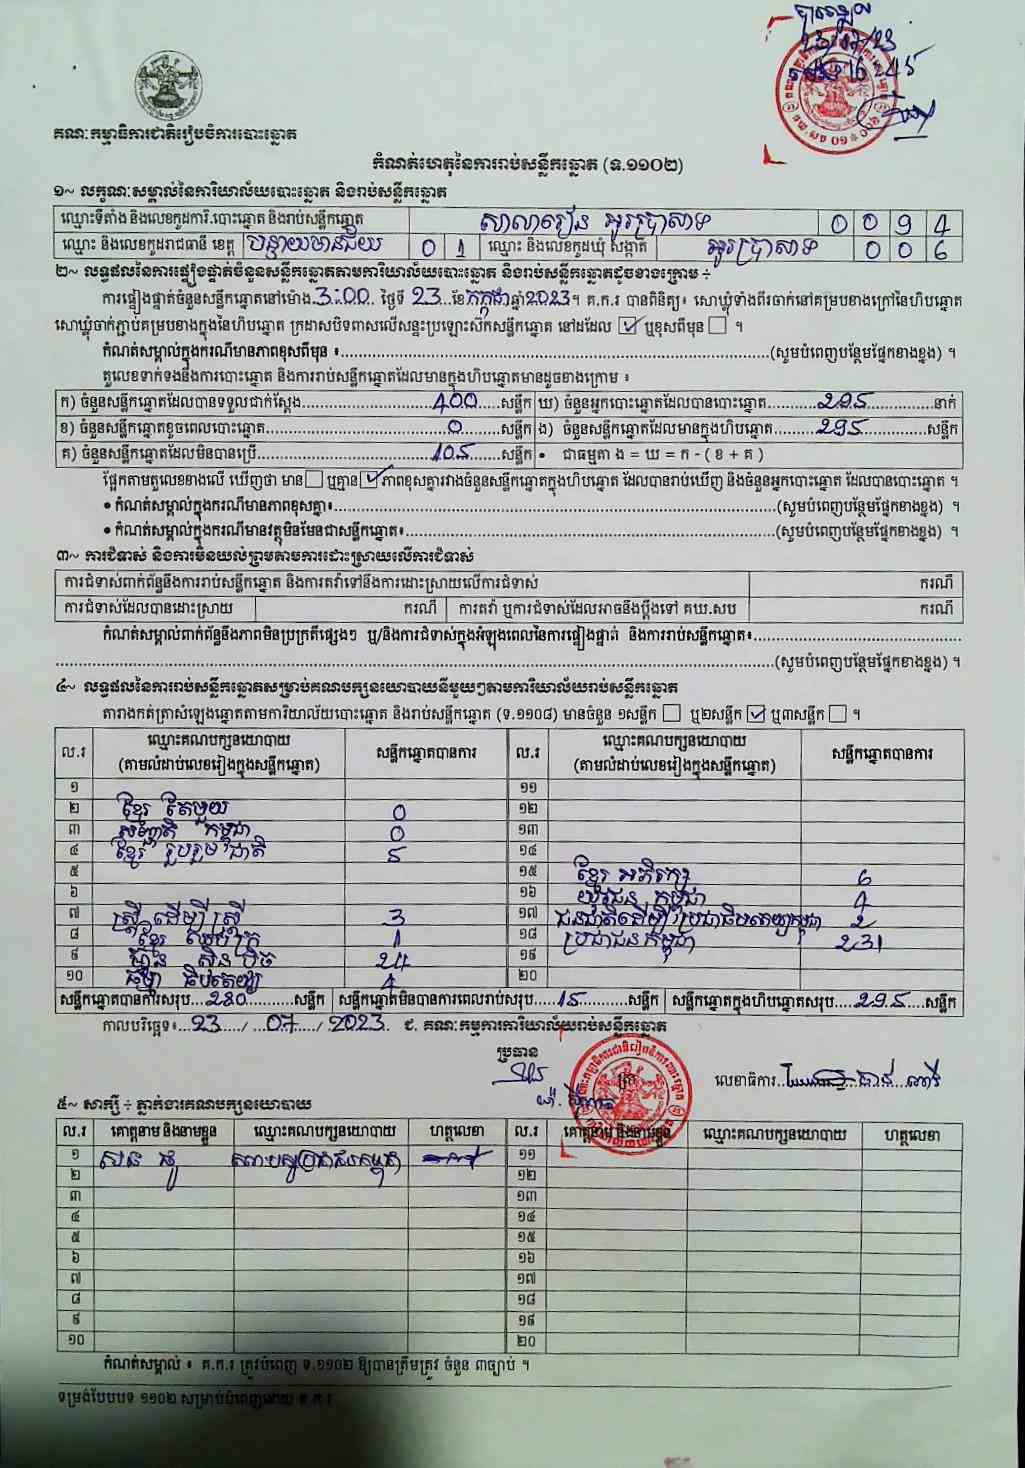 បានឃើញ
23/07/23
16:45
គណៈកម្មាធិការជាតិរៀបចំការបោះឆ្នោត
កំណត់ហេតុនៃការរាប់សន្លឹកឆ្នោត (ទ.១១០២)
១~ លក្ខណៈសម្គាល់នៃការិយាល័យបោះឆ្នោត និងរាប់សន្លឹកឆ្នោត
ឈ្មោះទីតាំង និងលេខកូដការិ.បោះឆ្នោត និងរាប់សន្លឹកឆ្នោត សាលារៀន អូរប្រាសាទ 0 0 9 4
ឈ្មោះ និងលេខកូដរាជធានី ខេត្ត បន្ទាយមានជ័យ 0 1 ឈ្មោះ និងលេខកូដឃុំ សង្កាត់ អូរប្រាសាទ 0 0 6
២~ លទ្ធផលនៃការផ្ទៀងផ្ទាត់ចំនួនសន្លឹកឆ្នោតតាមការិយាល័យបោះឆ្នោត និងរាប់សន្លឹកឆ្នោតដូចខាងក្រោម ÷
ការផ្ទៀងផ្ទាត់ចំនួនសន្លឹកឆ្នោតនៅម៉ោង 3:00 ថ្ងៃទី 23 ខែ កក្កដា ឆ្នាំ 2023។ គ.ក.រ បានពិនិត្យ៖ សោឃ្លុំទាំងពីរចាក់នៅគម្របខាងក្រៅនៃហិបឆ្នោត
សោឃ្លុំចាក់ភ្ជាប់គម្របខាងក្នុងនៃហិបឆ្នោត ក្រដាសបិទពាសលើសន្ទះប្រឡោះស៊កសន្លឹកឆ្នោត នៅដដែល ☑ ឬខុសពីមុន ☐ ។
កំណត់សម្គាល់ក្នុងករណីមានភាពខុសពីមុន ៖ (សូមបំពេញបន្ថែមផ្នែកខាងខ្នង) ។
តួលេខទាក់ទងនឹងការបោះឆ្នោត និងការរាប់សន្លឹកឆ្នោតដែលមានក្នុងហិបឆ្នោតមានដូចខាងក្រោម ៖
ក) ចំនួនសន្លឹកឆ្នោតដែលបានទទួលជាក់ស្តែង 400 សន្លឹក ឃ) ចំនួនអ្នកបោះឆ្នោតដែលបានបោះឆ្នោត 295 នាក់
ខ) ចំនួនសន្លឹកឆ្នោតខូចពេលបោះឆ្នោត 0 សន្លឹក ង) ចំនួនសន្លឹកឆ្នោតដែលមានក្នុងហិបឆ្នោត 295 សន្លឹក
គ) ចំនួនសន្លឹកឆ្នោតដែលមិនបានប្រើ 105 សន្លឹក • ជាធម្មតា ង = ឃ = ក - ( ខ + គ )
ផ្អែកតាមតួលេខខាងលើ ឃើញថា មាន ☐ ឬគ្មាន ☑ ភាពខុសគ្នារវាងចំនួនសន្លឹកឆ្នោតក្នុងហិបឆ្នោត ដែលបានរាប់ឃើញ និងចំនួនអ្នកបោះឆ្នោត ដែលបានបោះឆ្នោត ។
• កំណត់សម្គាល់ក្នុងករណីមានភាពខុសគ្នា៖ (សូមបំពេញបន្ថែមផ្នែកខាងខ្នង) ។
• កំណត់សម្គាល់ក្នុងករណីមានវត្ថុមិនមែនជាសន្លឹកឆ្នោត៖ (សូមបំពេញបន្ថែមផ្នែកខាងខ្នង) ។
៣~ ការជំទាស់ និងការមិនយល់ព្រមតាមការដោះស្រាយលើការជំទាស់
ការជំទាស់ពាក់ព័ន្ធនឹងការរាប់សន្លឹកឆ្នោត និងការតវ៉ាទៅនឹងការដោះស្រាយលើការជំទាស់ ករណី
ការជំទាស់ដែលបានដោះស្រាយ ករណី ការតវ៉ា ឬការជំទាស់ដែលអាចនឹងប្តឹងទៅ គឃ.សប ករណី
កំណត់សម្គាល់ពាក់ព័ន្ធនឹងភាពមិនប្រក្រតីផ្សេងៗ ឬ/និងការជំទាស់ក្នុងអំឡុងពេលនៃការផ្ទៀងផ្ទាត់ និងការរាប់សន្លឹកឆ្នោត៖
(សូមបំពេញបន្ថែមផ្នែកខាងខ្នង) ។
៤~ លទ្ធផលនៃការរាប់សន្លឹកឆ្នោតសម្រាប់គណបក្សនយោបាយនីមួយៗតាមការិយាល័យរាប់សន្លឹកឆ្នោត
តារាងកត់ត្រាសំឡេងឆ្នោតតាមការិយាល័យបោះឆ្នោត និងរាប់សន្លឹកឆ្នោត (ទ.១១០៨) មានចំនួន ១សន្លឹក ☐ ឬ២សន្លឹក ☑ ឬ៣សន្លឹក ☐ ។
ល.រ ឈ្មោះគណបក្សនយោបាយ (តាមលំដាប់លេខរៀងក្នុងសន្លឹកឆ្នោត) សន្លឹកឆ្នោតបានការ ល.រ ឈ្មោះគណបក្សនយោបាយ (តាមលំដាប់លេខរៀងក្នុងសន្លឹកឆ្នោត) សន្លឹកឆ្នោតបានការ
១ ១១
២ ខ្មែរ តែមួយ 0 ១២
៣ សញ្ជាតិ កម្ពុជា 0 ១៣
៤ ខ្មែរ រួបរួម ជាតិ 5 ១៤
៥ ១៥ ខ្មែរ អភិរក្ស 6
៦ ១៦ យុវជន កម្ពុជា 4
៧ ស្ត្រី ដើម្បី ស្ត្រី 3 ១៧ ជនជាតិដើម្បី ប្រជាធិបតេយ្យកម្ពុជា 2
៨ ខ្មែរ ឈប់ក្រ 1 ១៨ ប្រជាជន កម្ពុជា 231
៩ ហ្វ៊ុន ស៊ិន ប៉ិច 24 ១៩
១០ ធម្មា ធិបតេយ្យ 4 ២០
សន្លឹកឆ្នោតបានការសរុប 280 សន្លឹក សន្លឹកឆ្នោតមិនបានការពេលរាប់សរុប 15 សន្លឹក សន្លឹកឆ្នោតក្នុងហិបឆ្នោតសរុប 295 សន្លឹក
កាលបរិច្ឆេទ៖ 23 / 07 / 2023 ជ. គណៈកម្មការការិយាល័យរាប់សន្លឹកឆ្នោត
ប្រធាន
លេខាធិការ
៥~ សាក្សី ÷ ភ្នាក់ងារគណបក្សនយោបាយ
ល.រ គោត្តនាម និងនាមខ្លួន ឈ្មោះគណបក្សនយោបាយ ហត្ថលេខា ល.រ គោត្តនាម និងនាមខ្លួន ឈ្មោះគណបក្សនយោបាយ ហត្ថលេខា
១ សាន ផូ គណបក្សប្រជាជនកម្ពុជា ១១
២ ១២
៣ ១៣
៤ ១៤
៥ ១៥
៦ ១៦
៧ ១៧
៨ ១៨
៩ ១៩
១០ ២០
កំណត់សម្គាល់ ៖ គ.ក.រ ត្រូវបំពេញ ទ.១១០២ ឱ្យបានត្រឹមត្រូវ ចំនួន ៣ច្បាប់ ។
ទម្រង់បែបបទ ១១០២ សម្រាប់បំពេញដោយ គ.ក.រ